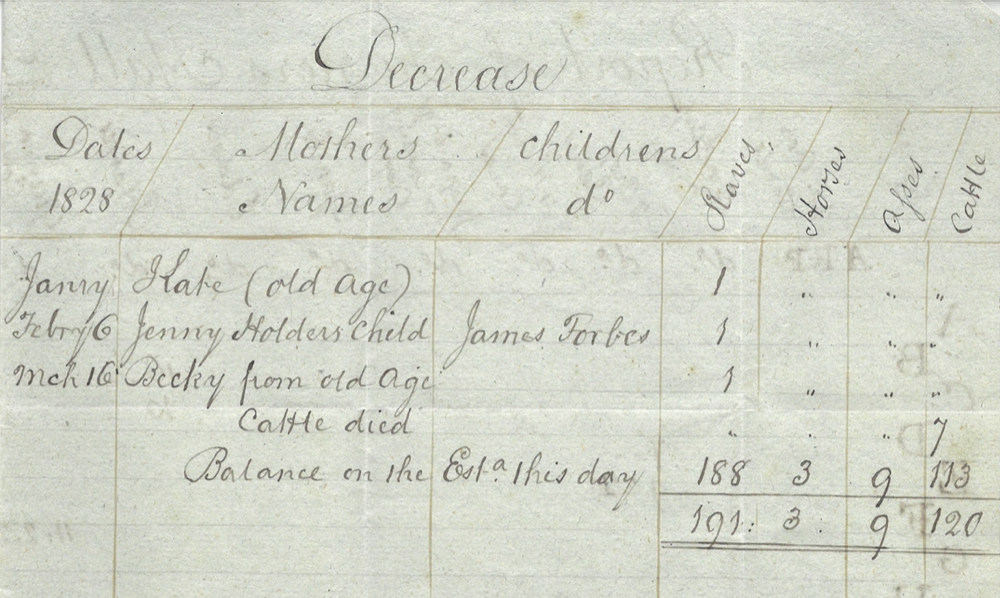 Decrease
Dates Mothers childrens Slaves, Horses Asses Cattle
1828 Names do
Janry Kate (old Age) 1 " " "
Febry 6 Jenny Holders child James Forbes 1 " " "
Mch 16 Becky from old Age 1 " " "
Cattle died " " " 7
Balance on the Esta. this day 188 3 9 113
191: 3. 9 120